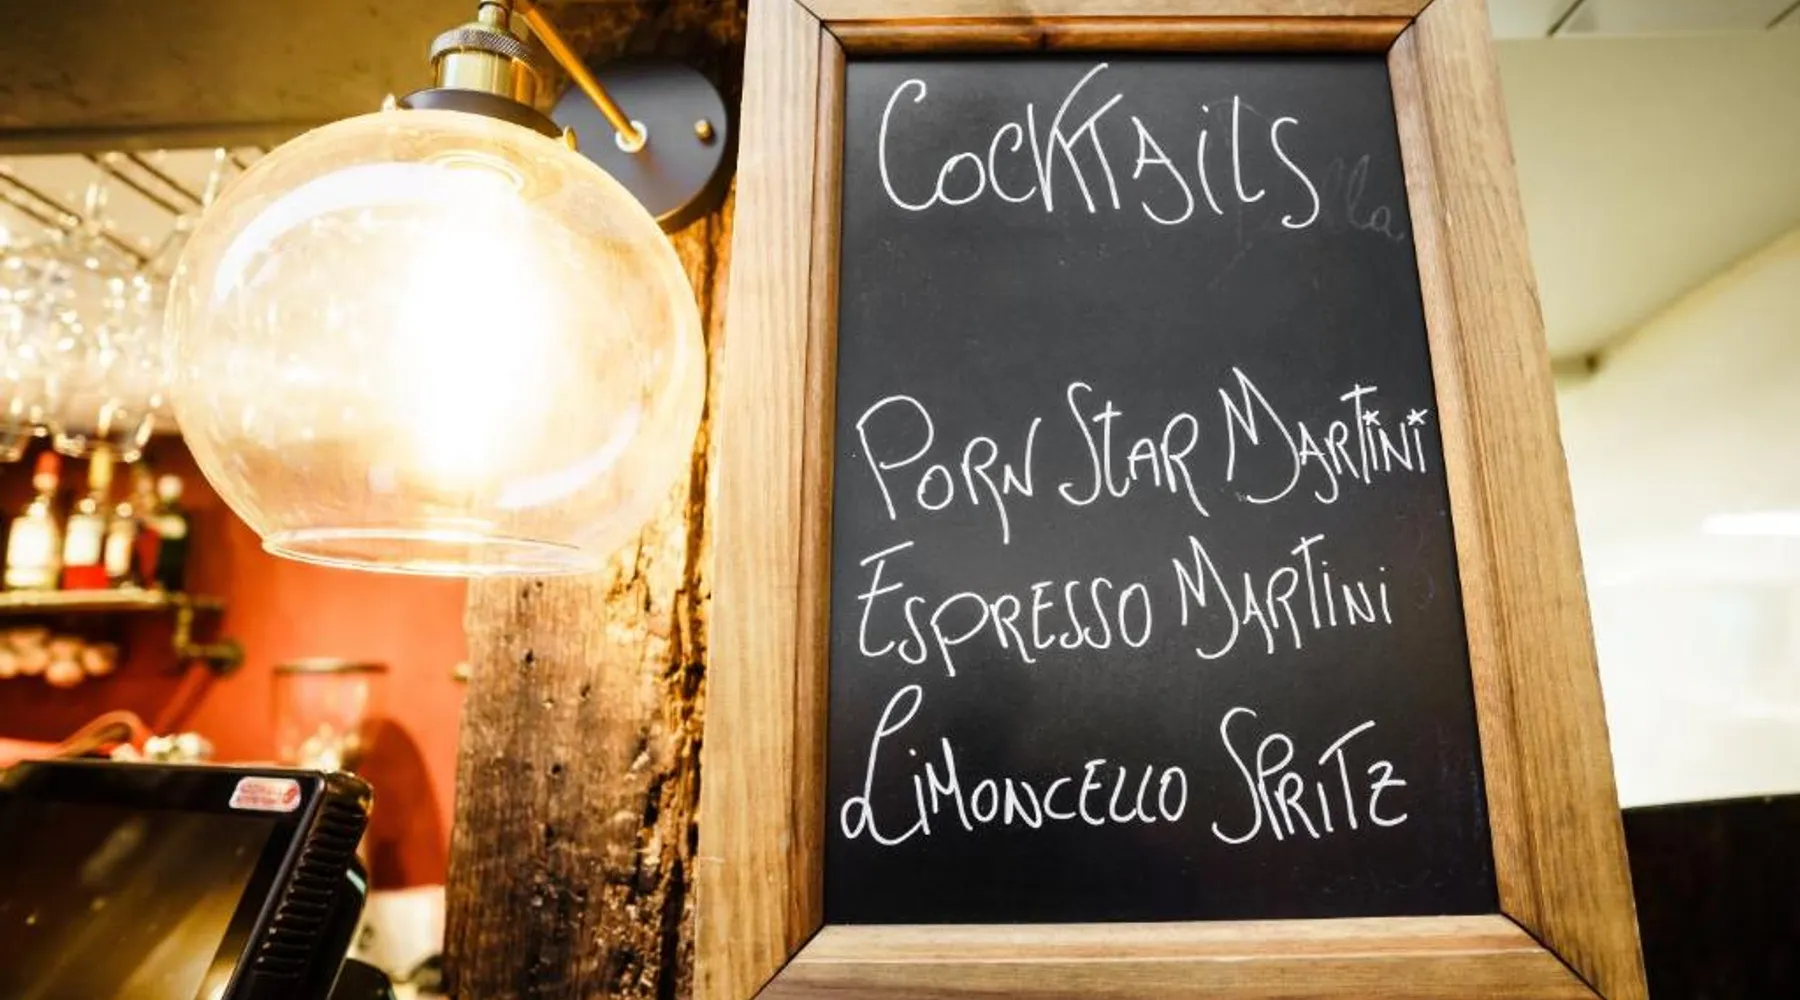 Cocktails
Porn Star Martini
Espresso Martini
Limoncello Spritz